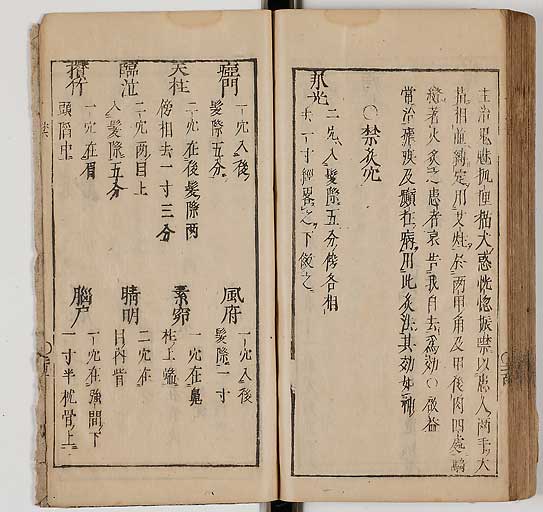 主治鬼魅狐狸猫犬惑恍惚振禁以患人兩手大
指相並縛定用艾炷於兩甲角及甲後肉四處騎
縫著火灸之患者哀告我自去爲効○啟益
常治癲疾及顛狂病用此灸法其効如神
○禁灸穴
二穴入髮際五分傍各相
去一寸經畧之下倣之
瘂門
一穴入後
髮際五分
風府
一穴入後
髮際一寸
天柱
二穴在後髮際兩
傍相去一寸三分
素窌
一穴在鼻
柱上端
臨泣
二穴兩目上
入髮際五分
睛明
二穴在
目內眥
攢竹
一穴在眉
頭陷中
腦戶
一穴在強間下
一寸半枕骨上